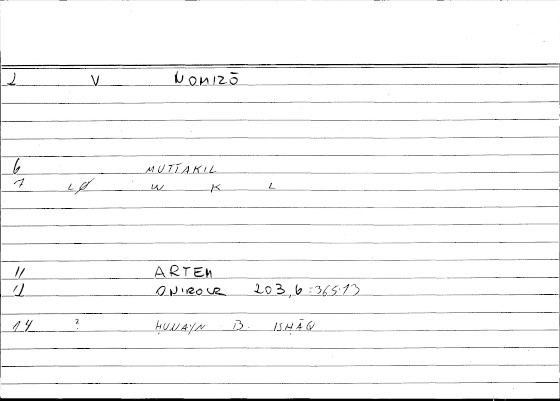 2 V NOMIZŌ
6 MUTTAKIL
7 LØ W K L
11 ARTEM
12 ONIROCR 203,6:365.13
14 ? ḤUNAYN B. ISḤĀQ